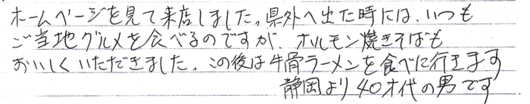 ホームページを見て来店しました。県外へ出た時には、いつも
ご当地グルメを食べるのですが、ホルモン焼きそばも
おいしくいただきました。この後は牛骨ラーメンを食べに行きます
静岡より40才代の男です